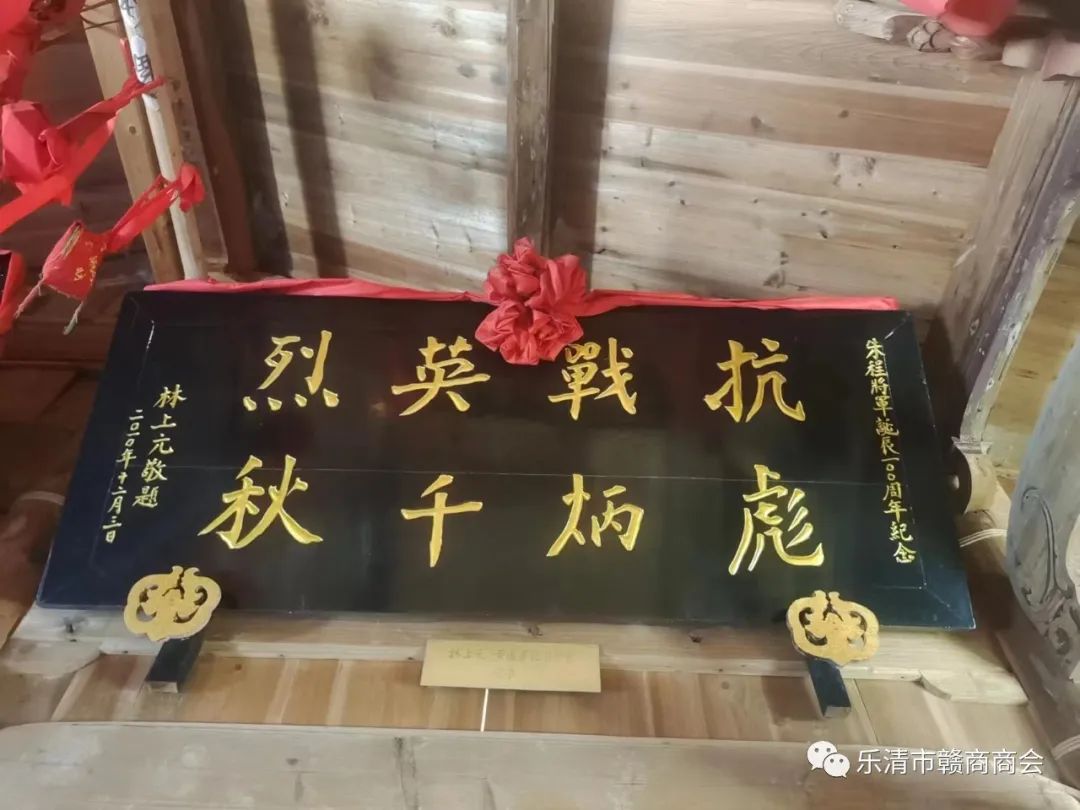 朱程將軍誕辰一〇〇周年紀念
抗戰英烈
彪炳千秋
林上元敬題
二〇一〇年十二月三日
林上元
乐清市赣商商会